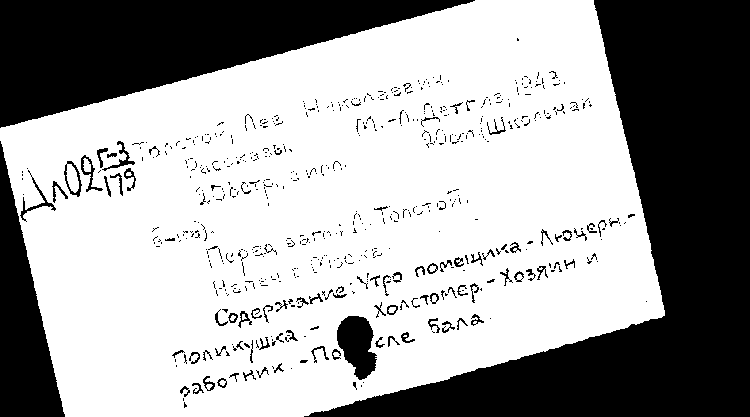 Дл02 Г-3/179
Толстой, Лев Николаевич.
Рассказы. М.-Л., Детгиз, 1943.
стр., с илл. 20см. (Школьная
б-ка).
Перед загл.: Л. Толстой.
Напеч. в Москве.
Содержание: Утро помещика.-Люцерн.-
Поликушка.- Холстомер.-Хозяин и
работник.-После бала.